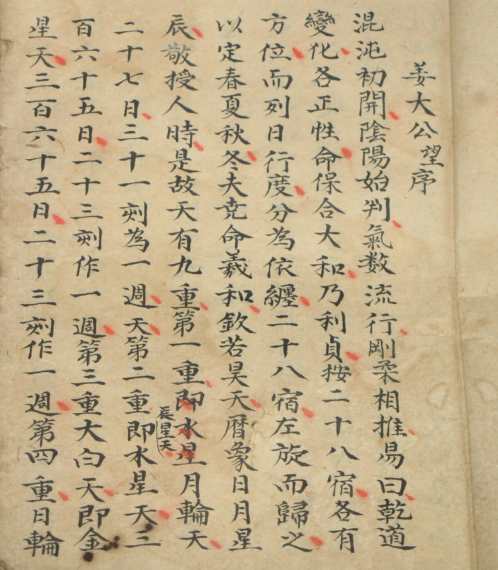 姜大公望序
混沌初開陰陽始判氣数流行剛柔相推易曰乾道
變化各正性命保合大和乃利貞按二十八宿各有
方位而列日行度分為依纏二十八宿左旋而歸之
以定春夏秋冬夫尭命羲和欽若昊天暦象日月星
辰敬授人時是故天有九重第一重即水星月輪天
辰星天
二十七日三十一刻為一週天第二重即水星天三
百六十五日二十三刻作一週第三重大白天即金
星天三百六十五日二十三刻作一週第四重日輪